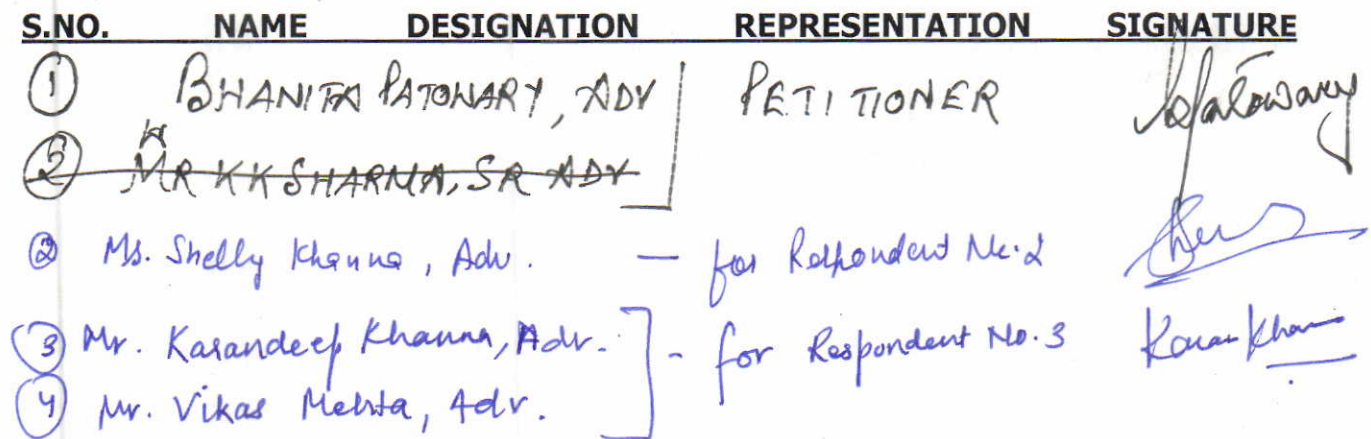 S.NO. NAME DESIGNATION REPRESENTATION SIGNATURE
① BHANITA PATOWARY, ADV PETITIONER BPatowary
② MR KK SHARMA, SR ADV
② Ms. Shelly Khanna, Adv. — for Respondent No. 2
③ Mr. Karandeep Khanna, Adv. - for Respondent No. 3 Karan Khanna
④ Mr. Vikas Mehta, Adv.